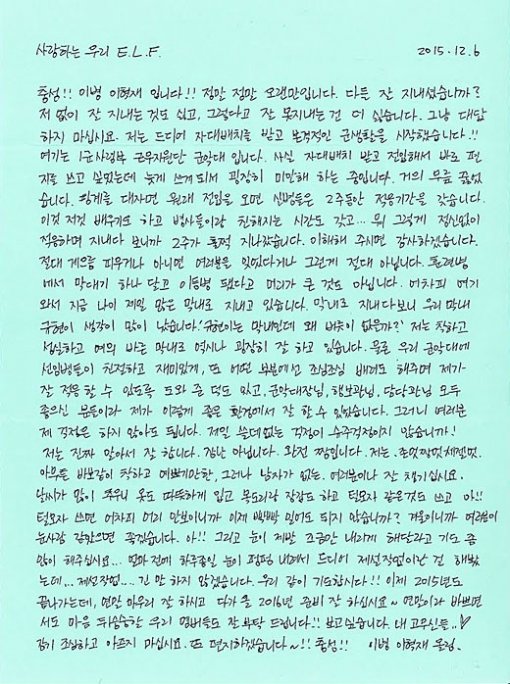 사랑하는 우리 E.L.F. 2015.12.6
충성!! 이병 이혁재 입니다!! 정말 정말 오랜만입니다. 다들 잘 지내셨습니까?
저 없이 잘 지내는 것도 싫고, 그렇다고 잘 못지내는 건 더 싫습니다. 그냥 대답
하지 마십시요. 저는 드디어 자대배치를 받고 본격적인 군생활을 시작했습니다.!!
여기는 1군사령부 근무지원단 군악대 입니다. 사실 자대배치 받고 전입해서 바로 편
지를 쓰고 싶었는데 늦게 쓰게 되서 굉장히 미안해 하는 중입니다. 거의 무릎 꿇었
습니다. 핑계를 대자면 원래 전입을 오면 신병들은 2주동안 적응기간을 갖습니다.
이것 저것 배우기도 하고 병사들이랑 친해지는 시간도 갖고... 뭐 그렇게 정신없이
적응하며 지내다 보니까 2주가 훌쩍 지나갔습니다. 이해해 주시면 감사하겠습니다.
절대 게으름 피우거나 아니면 여러분을 잊었다거나 그런게 절대 아닙니다. 훈련병
에서 막대기 하나 달고 이등병 됐다고 머리가 큰 것도 아닙니다. 어차피 여기
와서 지금 나이 제일 많은 막내로 지내고 있습니다. 막내로 지내다보니 우리 막내
규현이 생각이 많이 났습니다! 규현이는 막내인데 왜 버릇이 없을까?' 저는 착하고
성실하고 예의 바른 막내로 역시나 굉장히 잘 하고 있습니다. 물론 우리 군악대에
선임병들이 친절하고 재미있게, 또 어떤 부분에선 조심조심 배려도 해주며 제가
잘 적응 할 수 있도록 도와 준 덕도 있고, 군악대장님, 행보관님, 담당관님 모두
좋으신 분들이라 제가 이렇게 좋은 환경에서 잘 할 수 있었습니다. 그러니 여러분
제 걱정은 하지 않아도 됩니다. 제일 쓸데없는 걱정이 슈주걱정이지 않습니까!
저는 진짜 알아서 잘 합니다. 겁나 아닙니다. 완전 짱입니다. 저는. 존멋짱멋체젤멋.
아무튼 바보같이 착하고 예쁘기만한, 그러나 남자가 없는. 여러분이나 잘 챙기십시요.
날씨가 많이 추우니 옷도 따뜻하게 입고 목도리랑 장갑도 하고 털모자 같은것도 쓰고 아!!
털모자 쓰면 어차피 머리 안보이니까 이제 빡빡 밀어도 되지 않습니까? 겨울이니까 여러분이
눈사람 같았으면 좋겠습니다. 아!! 그리고 눈이 제발 조금만 내리게 해달라고 기도 좀
많이 해주십시요... 얼마전에 하루종일 눈이 펑펑 내려서 드디어 제설작업이란 걸 해봤
는데... 제설작업.... 긴 말 하지 않겠습니다. 우리 같이 기도합시다!! 이제 2015년도
끝나가는데, 연말 마무리 잘 하시고 다가올 2016년 준비 잘 하십시요~ 연말이라 바쁘면
서도 마음 뒤숭숭한 우리 멤버들도 잘 부탁 드립니다!! 보고싶습니다. 내 고우신들..♡
감기 조심하고 아프지 마십시요. 또 편지하겠습니다~!! 충성!! 이병 이혁재 올림.